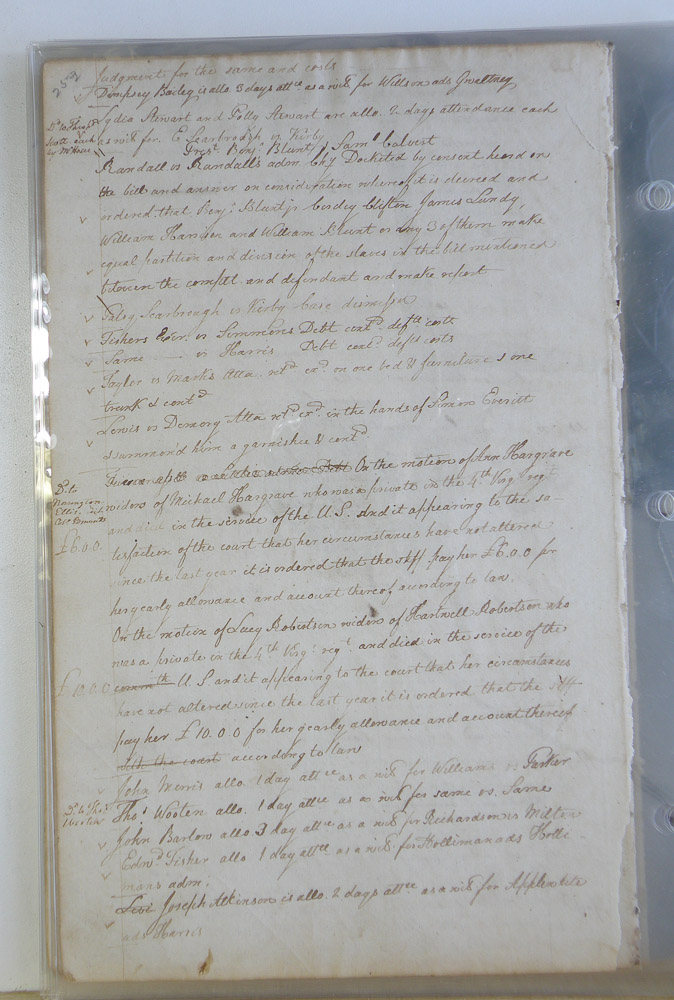 252
Judgment for the same and costs
Dempsey Bailey is allo. 3 days attce as a wit for Wills on ads Gwaltney
Lydia Stewart and Polly Stewart are allo. 2 days attendance each
as wit for E Scarbrough vs Kirby
Prest. Benj. Blunt Saml Calvert
Randall vs Randall's adm Chy Docketed by consent heard on
the bill and answer on consideration whereof it is decreed and
ordered that Benj. Blunt jr Cordey Clifton James Lundy,
William Harrison and William Blunt or any 3 of them make
equal partition and division of the slaves in the bill mentioned
between the complt. and defendant and make report
Patsy Scarbrough vs Kirby Case dismissed
Fishers Exor. vs Simmons Debt contd. defts costs
Same vs Harris Debt contd. defts costs
Taylor vs Marks Atta. retd exd. on one bed & furniture & one
trunk & contd
Lewis vs Demory Atta retd exd. in the hands of Simon Everitt
& summon'd him a garnishee & contd
On the motion of Ann Hargrave
widow of Michael Hargrave who was a private in the 4th Virga regt
and died in the service of the U.S. and it appearing to the sa-
tisfaction of the court that her circumstances have not altered
since the last year it is ordered that the shff. pay her £6.0.0 for
her yearly allowance and account thereof according to law.
£6.0.0.
On the motion of Lucy Robertson widow of Hartwell Robertson who
was a private in the 4th Virga. regt. and died in the service of the
U.S. and it appearing to the court that her circumstances
£10.0.0
have not altered since the last year it is ordered that the shff
pay her £10.0.0 for her yearly allowance and account thereof
with the court according to law
John Morris allo. 1 day attce as a wit for Williams vs Parker
Thos Wooten allo. 1 day attce as a wit for same vs. Same
John Barlow allo 3 day attce as a wit for Richardson vs Milton
Edwd Fisher allo 1 day attce as a wit for Holliman ads Holli
mans adm.
Levi Joseph Atkinson is allo. 2 days attce as a wit for Applewhite
ads Harris